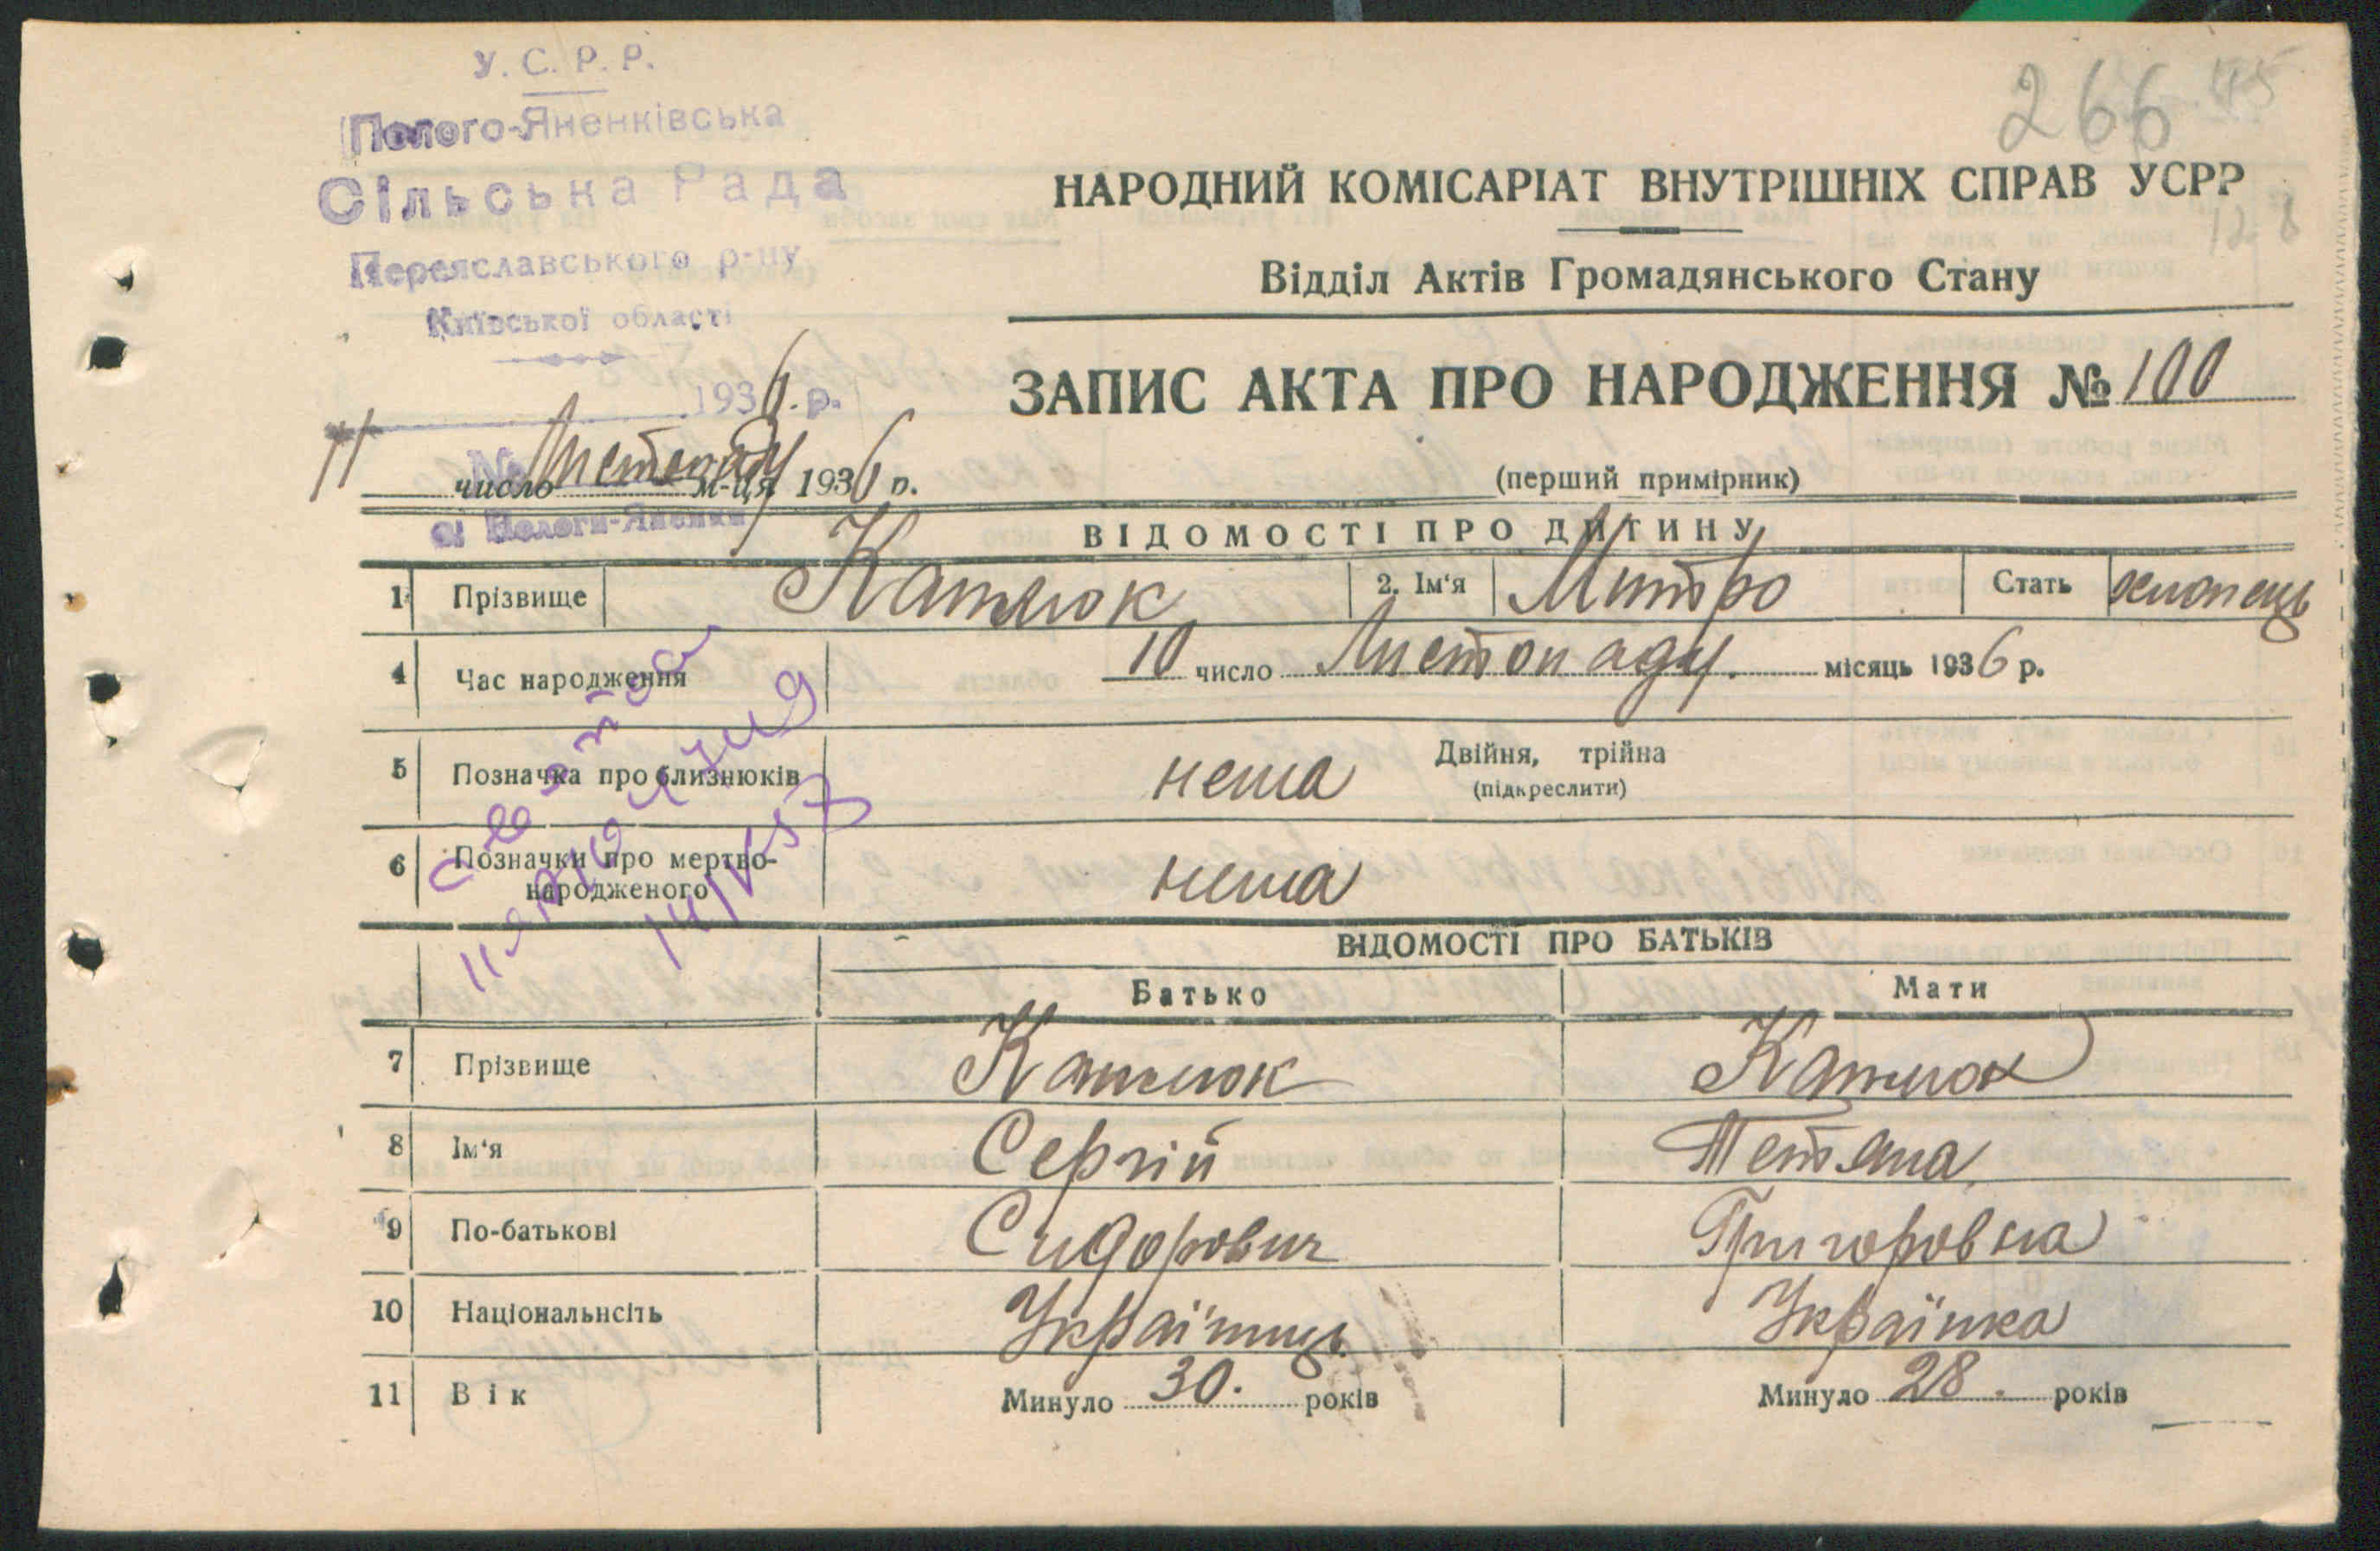 У. С. Р. Р.
Полого-Яненківська
Сільська Рада
Переяславського р-ну
Київської області
1936 р.
№
с. Пологи-Яненки
266
НАРОДНИЙ КОМІСАРІАТ ВНУТРІШНІХ СПРАВ УСРР
Відділ Актів Громадянського Стану
ЗАПИС АКТА ПРО НАРОДЖЕННЯ № 100
11 число Листопаду м-ця 1936 р.
(перший примірник)
ВІДОМОСТІ ПРО ДИТИНУ
1 Прізвище Катлюк 2. Ім'я Митро Стать хлопець
4 Час народження 10 число Листопаду. місяць 1936 р.
5 Позначка про близнюків нема Двійня, трійня
(підкреслити)
6 Позначки про мертво-
народженого нема
ВІДОМОСТІ ПРО БАТЬКІВ
Батько Мати
7 Прізвище Катлюк Катлюк
8 Ім'я Сергій Тетяна
9 По-батькові Сидорович Григоровна
10 Національнсіть Українець Українка
11 Вік Минуло 30. років Минуло 28. років